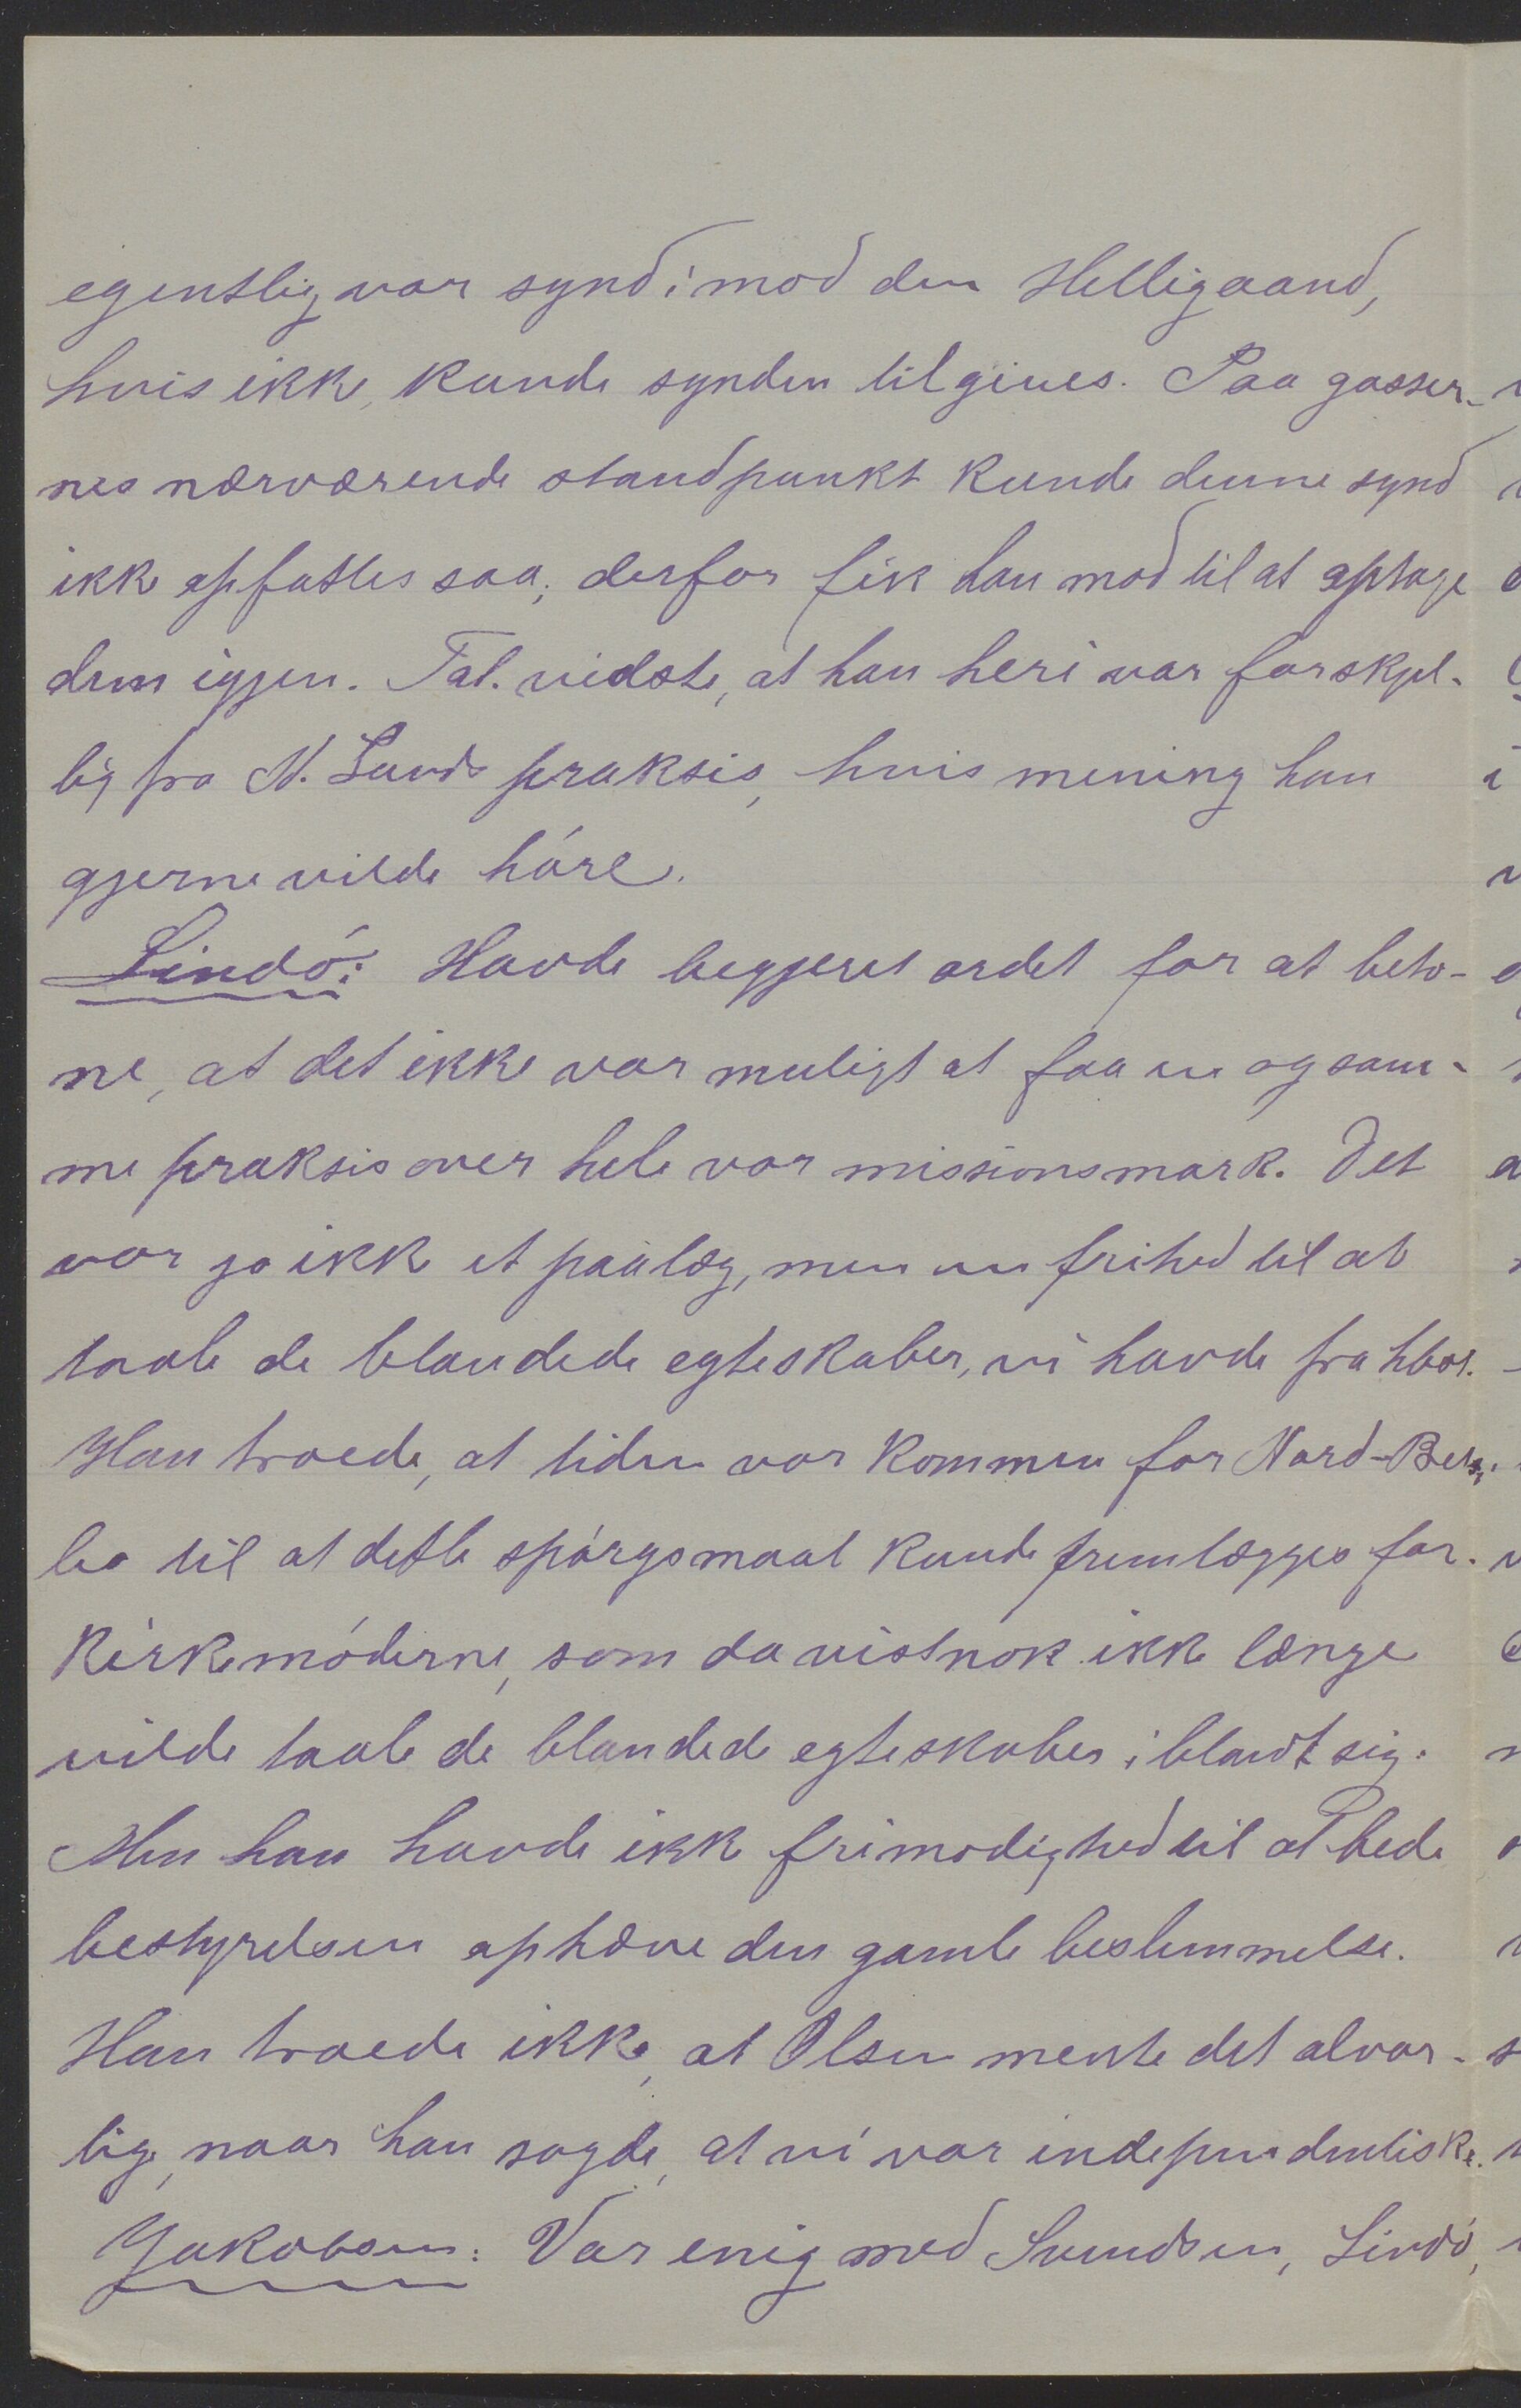 egentlig var synd imod den Helligaand,
hvis ikke, kunde synden tilgives. Paa gasser-
nes nærværende standpunkt kunde denne synd
ikke opfattes saa; derfor fik han mod til at optage
dem igjen. Tal. vidste, at han heri var forskjel-
lig fra N. Lunds praksis, hvis mening han
gjerne vilde höre.
Lindö: Havde begjeret ordet for at beto-
ne, at det ikke var muligt at faa en og sam-
me praksis over hele vor missionsmark. Det
var jo ikke et paalæg, men en frihed til at
taale de blandede egteskaber, vi havde fra hbest.
Han troede, at tiden var kommen for Nord-Betsi-
leo til at dette spörgsmaal kunde fremlægges for
kirkemöderne, som da vistnok ikke længe
vilde taale de blandede egteskaber iblandt sig.
Men han havde ikke frimodighed til at bede
bestyrelsen ophæve den gamle bestemmelse.
Han troede ikke, at Olsen mente det alvor-
lig, naar han sagde, at vi var independentiske.
Jakobsen: Var enig med Svendsen, Lindö,